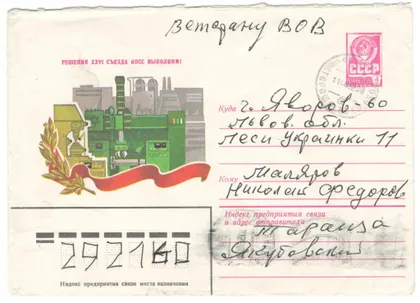 Ветерану ВОВ
РЕШЕНИЯ XXVI СЪЕЗДА КПСС ВЫПОЛНИМ!
СССР
Куда г. Яворов-60
Львов. обл.
Леси Украинки 11
Кому Маляров
Николай Федоров
Индекс предприятия связи
и адрес отправителя
292160
Индекс предприятия связи места назначения